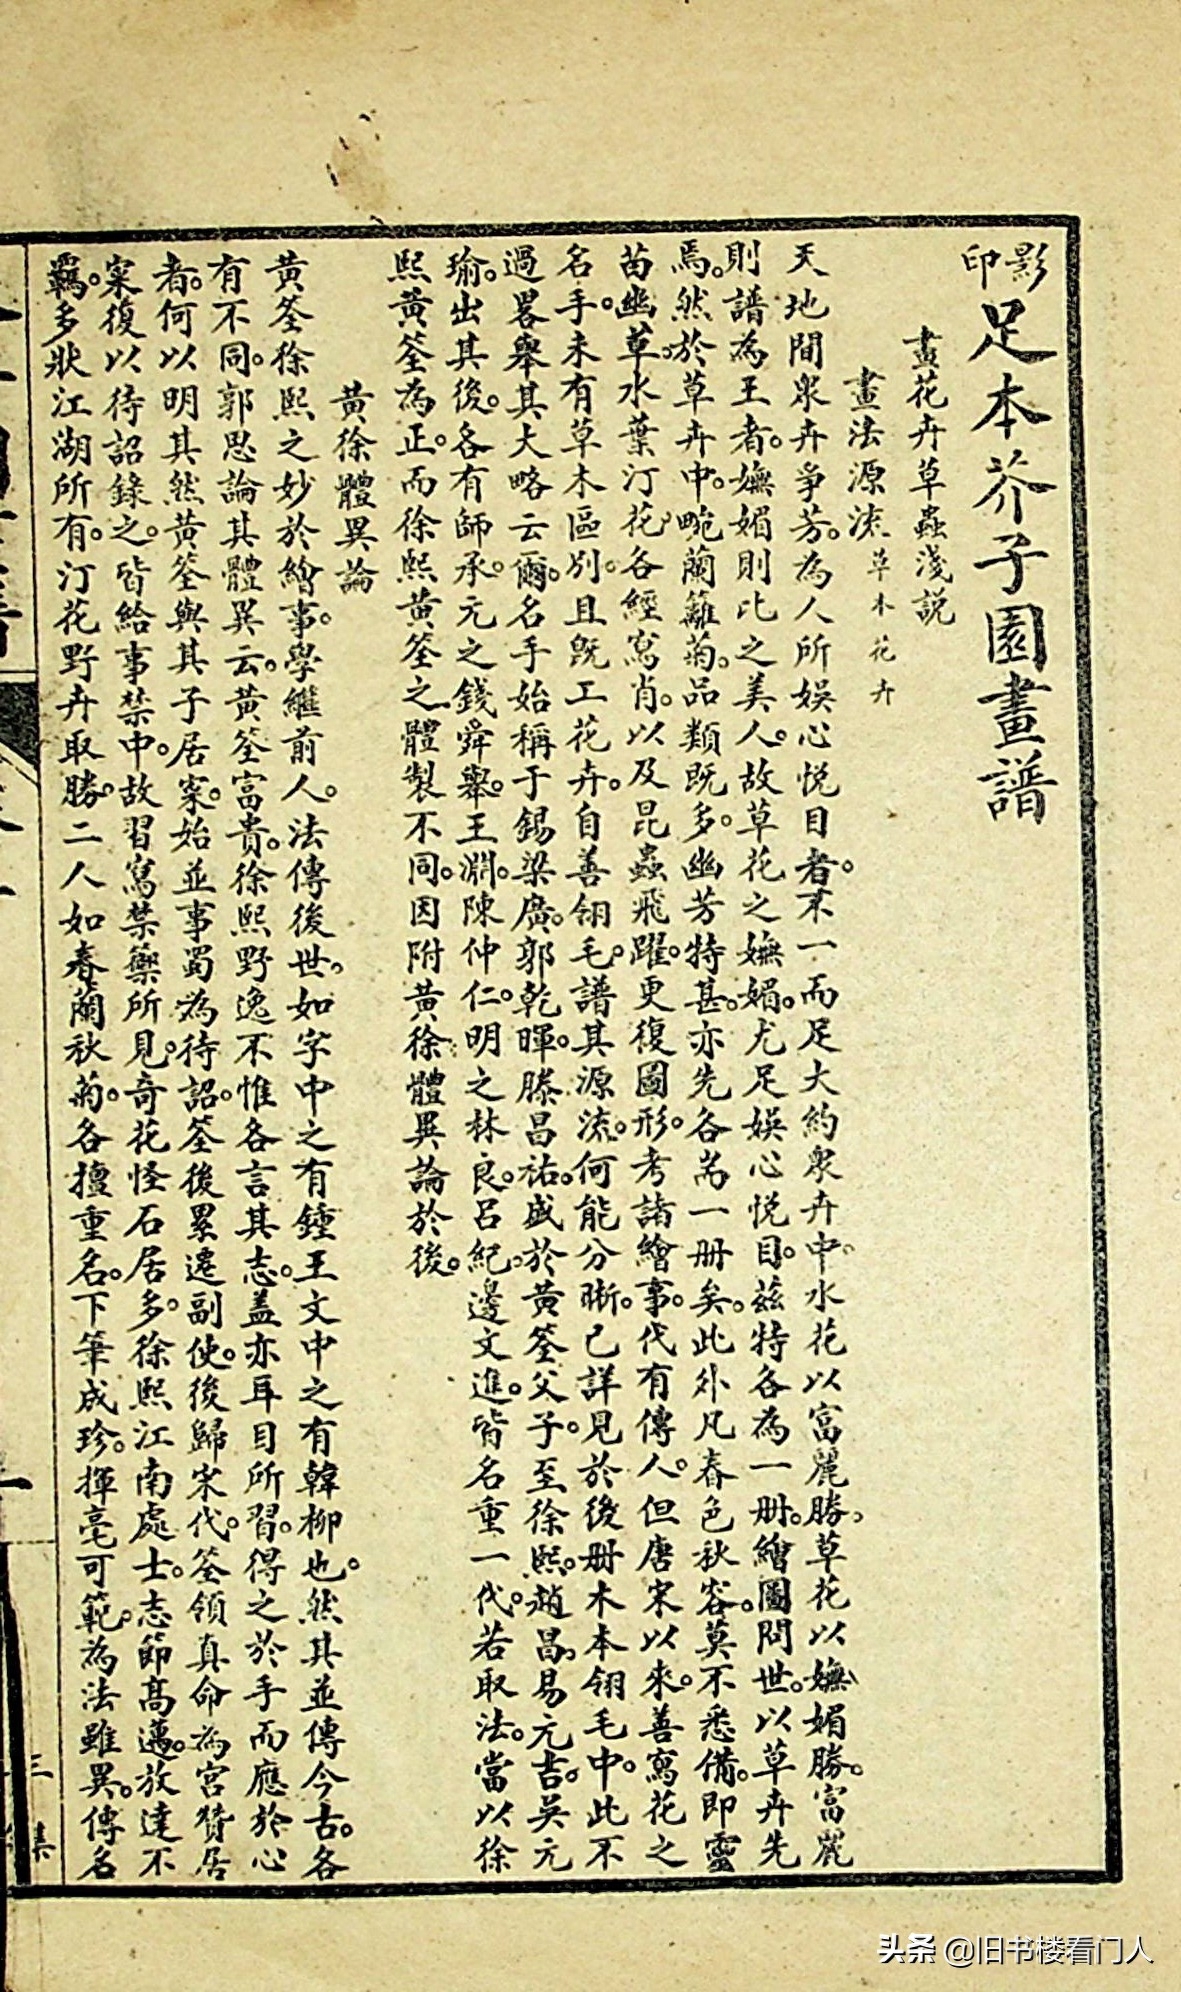 影印足本芥子園畫譜
畫花卉草蟲淺說
畫法源流草木花卉
天地間衆卉爭芳。為人所娛心悅目者。不一而足大約衆卉中。水花以富麗勝。草花以嫵媚勝。富麗
則譜為王者。嫵媚則比之美人。故草花之嫵媚。尤足娛心悅目。茲特各為一册。繪圖問世。以草卉先
焉。然於草卉中。畹蘭籬菊。品類既多。幽芳特甚。亦先各為一册矣。此外凡春色秋容。莫不悉備。即靈
苗幽草。水葉汀花。各經寫肖。以及昆蟲飛躍。更復圖形。考諸繪事。代有傳人。但唐宋以來。善寫花之
名手。未有草木區別。且既工花卉。自善翎毛。譜其源流。何能分晰。已詳見於後册木本翎毛中。此不
過畧舉其大略云爾。名手始稱于錫梁廣。郭乾暉。滕昌祐。盛於黃筌父子。至徐熙。趙昌。易元吉。吳元
瑜。出其後。各有師承。元之錢舜舉。王淵。陳仲仁。明之林良。呂紀。邊文進。皆名重一代。若取法。當以徐
熙黃筌為正。而徐熙黃筌之體製不同。因附黃徐體異論於後。
黃徐體異論
黃筌徐熙之妙於繪事。學繼前人。法傳後世。如字中之有鍾王文中之有韓柳也。然其並傳今古。各
有不同。郭思論其體異云。黃筌富貴。徐熙野逸不惟各言其志。蓋亦耳目所習。得之於手而應於心
者。何以明其然黃筌與其子居寀。始並事蜀為待詔。筌後累遷副使。後歸宋代。筌領真命為宮贊居
寀復以待詔錄之。皆給事禁中。故習寫禁籞所見。奇花怪石居多。徐熙江南處士。志節高邁。放達不
羈。多狀江湖所有。汀花野卉取勝。二人如春蘭秋菊。各擅重名。下筆成珍。揮毫可範。為法雖異。傳名
三集
头条 @旧书楼看门人